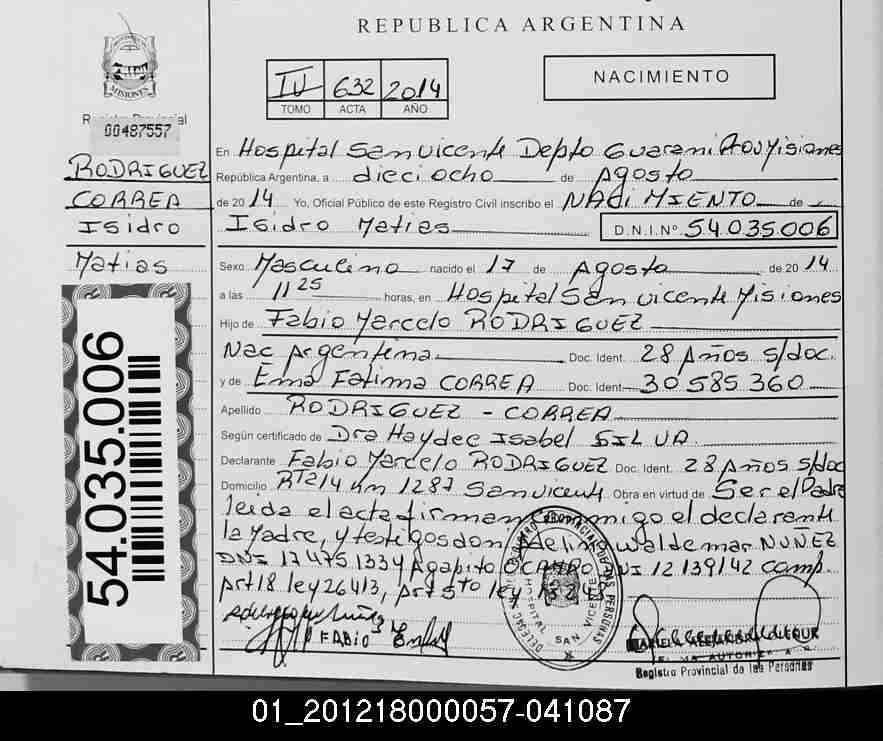 REPUBLICA ARGENTINA
MISIONES
Registro Provincial
00487557
RODRIGUEZ
CORREA
Isidro
Matias
54.035.006
IV 632 2014
TOMO ACTA AÑO
NACIMIENTO
En Hospital San Vicente Depto Guarani Prov Misiones
República Argentina, a dieciocho de Agosto
de 2014 Yo, Oficial Público de este Registro Civil inscribo el NACIMIENTO de
Isidro Matias D.N.I.Nº 54.035.006
Sexo Masculino nacido el 17 de Agosto de 2014
a las 11 25 horas, en Hospital San Vicente Misiones
Hijo de Fabio Marcelo RODRIGUEZ
Nac Argentina Doc. Ident. 28 Años s/doc.
y de Ema Fatima CORREA Doc. Ident. 30 585 360
Apellido RODRIGUEZ - CORREA
Según certificado de Dra Haydee Isabel SILVA
Declarante Fabio Marcelo RODRIGUEZ Doc. Ident. 28 Años s/doc
Domicilio Rta 14 Km 1287 San Vicente Obra en virtud de Ser el Padre
leida el acta firman conmigo el declarante
la Madre, y testigos don Waldemar NUÑEZ
DNI Agapito OCAMPO DNI 12 139142 comp.
Art 18 ley 26413, Art 5to ley
FABIO
HOSPITAL SAN VICENTE
PROVINCIAL DE LAS PERSONAS
Registro Provincial de las Personas
01_201218000057-041087